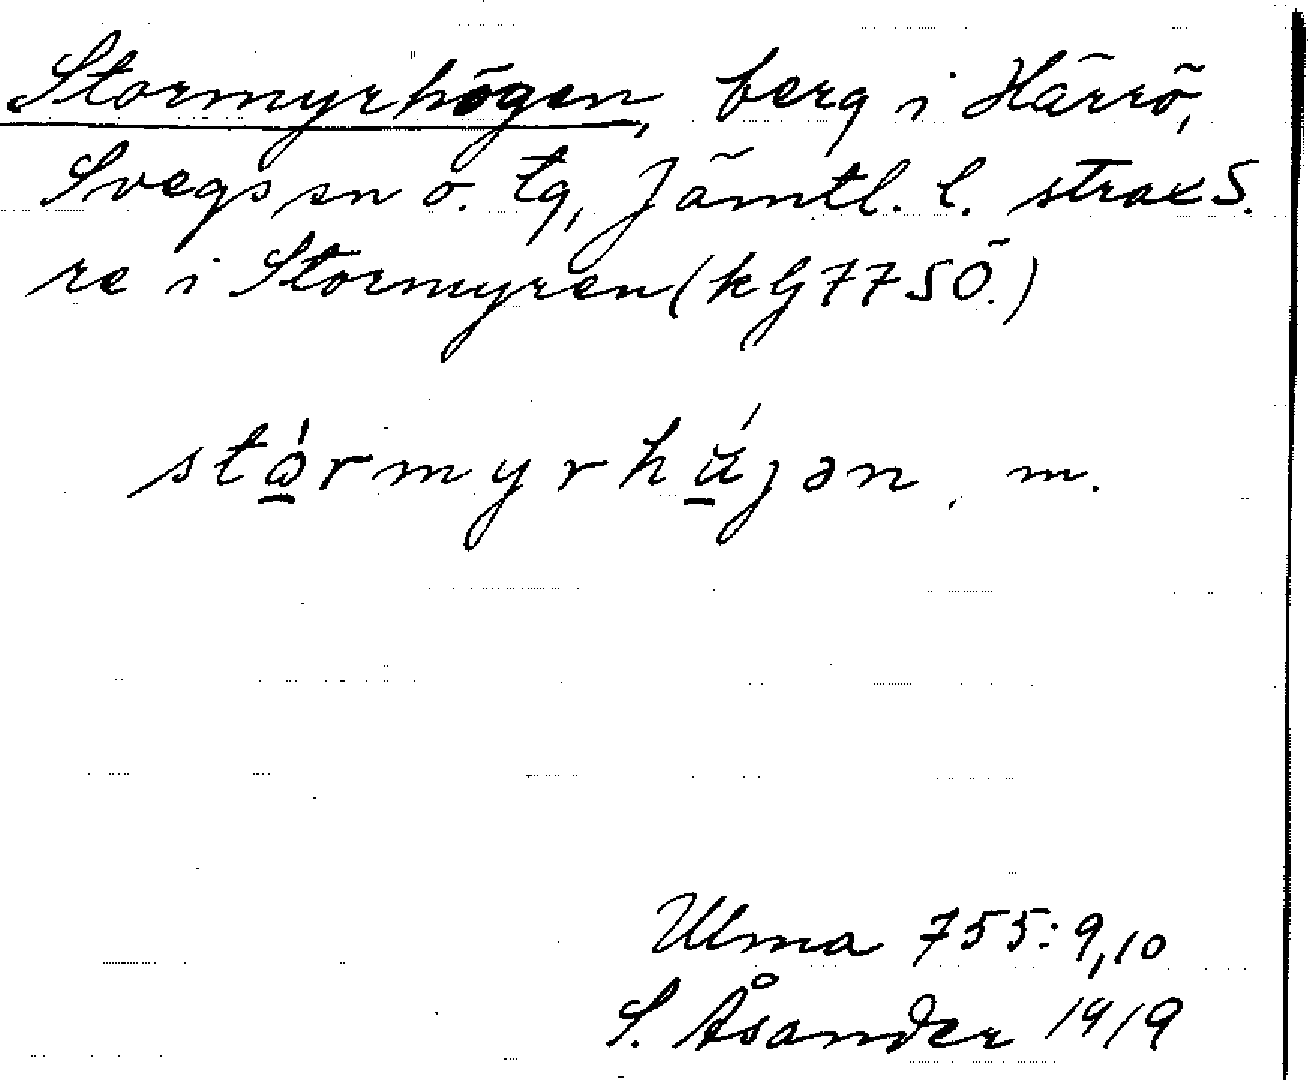 Stormyrhögen, berg i Härrö,
Svegs sn o. tg, Jämtl. l. strax S.
re i Stormyren (kG 77 SÖ.)
m.
Ulma 755: 9,10
S. Åsander 1919